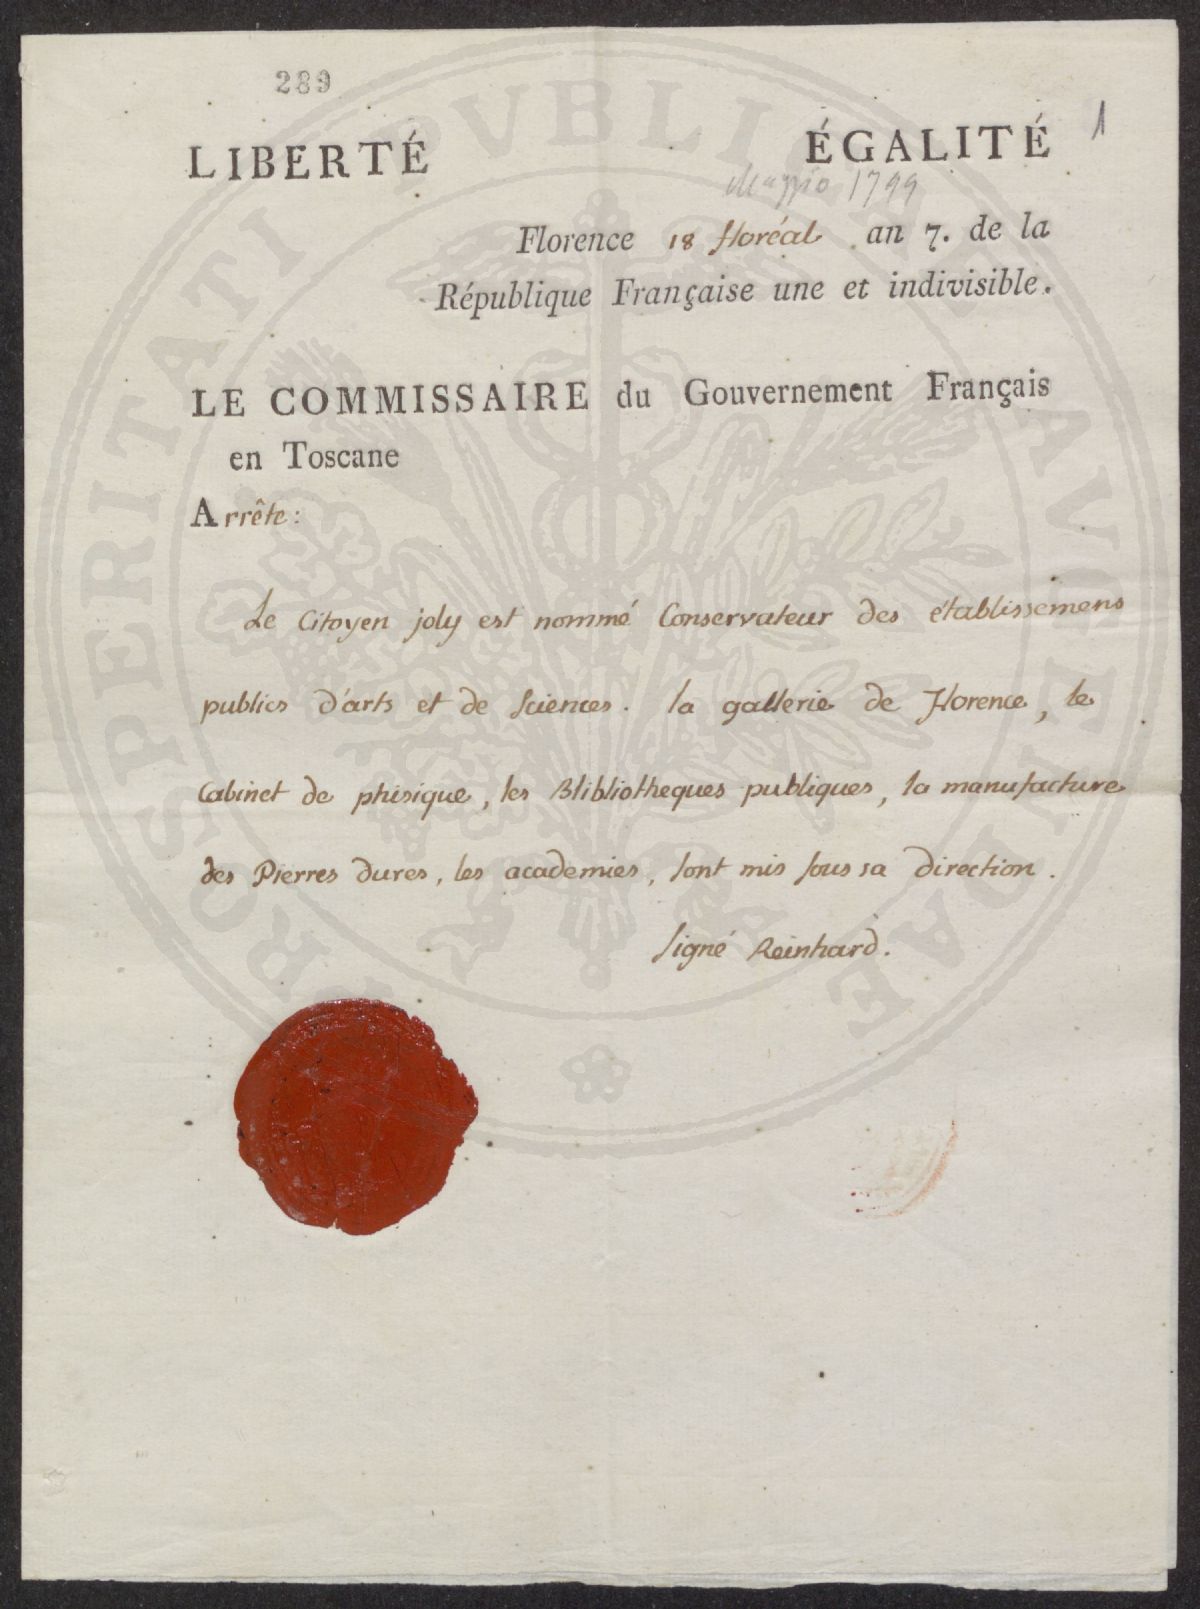 289
LIBERTÉ ÉGALITÉ 1
Maggio 1799
Florence 18 floréal an 7. de la
République Française une et indivisible.
LE COMMISSAIRE du Gouvernement Français
en Toscane
Arrête:
Le Citoyen joly est nommé Conservateur des établissemens
publics d'arts et de Sciences. la gallerie de Florence, le
Cabinet de phisique, les Blibliotheques publiques, la manufacture
des Pierres dures, les academies, sont mis sous sa direction.
signé Reinhard.
PROSPERITATI PVBLICAE AVGENDAE